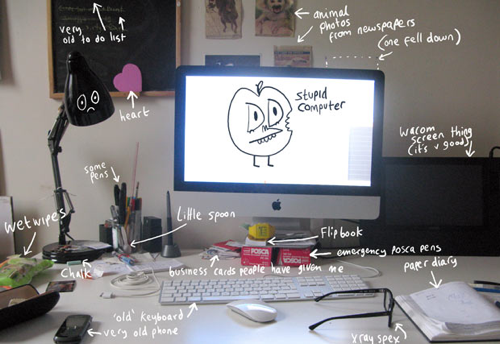 very
old to do list
animal
photos
from newspapers
(one fell down)
heart
stupid
computer
wacom screen thing
(it's v good)
some
pens
wetwipes
Little spoon
Flipbook
emergency Posca pens
chalk
business cards people have given me
paper diary
POSCA
'old' keyboard
very old phone
xray spex